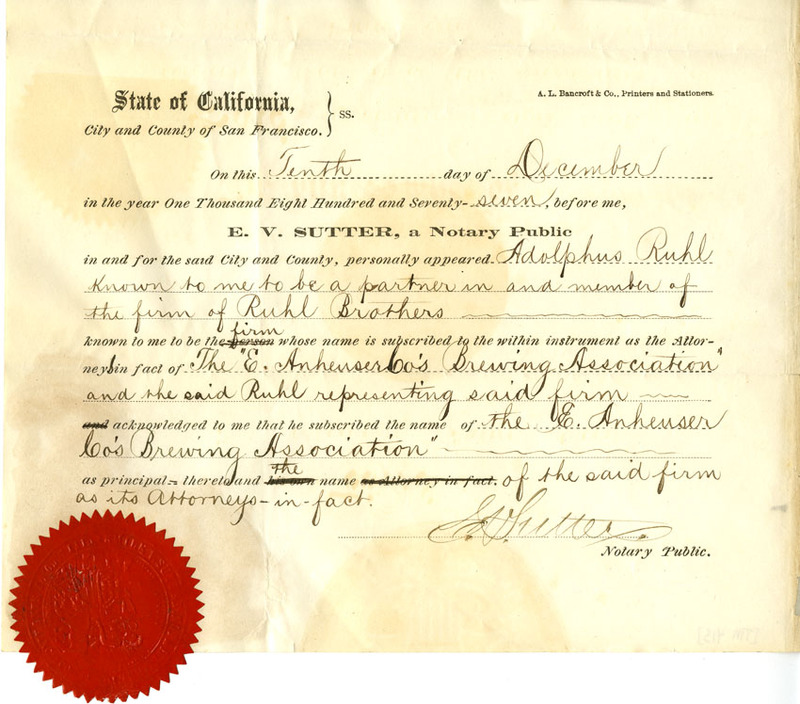 State of California,
City and County of San Francisco.
} ss.
A. L. Bancroft & Co., Printers and Stationers.
On this Tenth day of December
in the year One Thousand Eight Hundred and Seventy-seven, before me,
E. V. SUTTER, a Notary Public
in and for the said City and County, personally appeared Adolphus Ruhl
known to me to be a partner in and member of
the firm of Ruhl Brothers
firm
known to me to be the person whose name is subscribed to the within instrument as the Attor-
neys in fact of The "E. Anheuser Co's Brewing Association"
and the said Ruhl representing said firm
and acknowledged to me that he subscribed the name of the E. Anheuser
Co's Brewing Association"
the
as principal - thereto and his own name as Attorney in fact. of the said firm
as its Attorneys-in-fact.
E. V. Sutter
Notary Public.